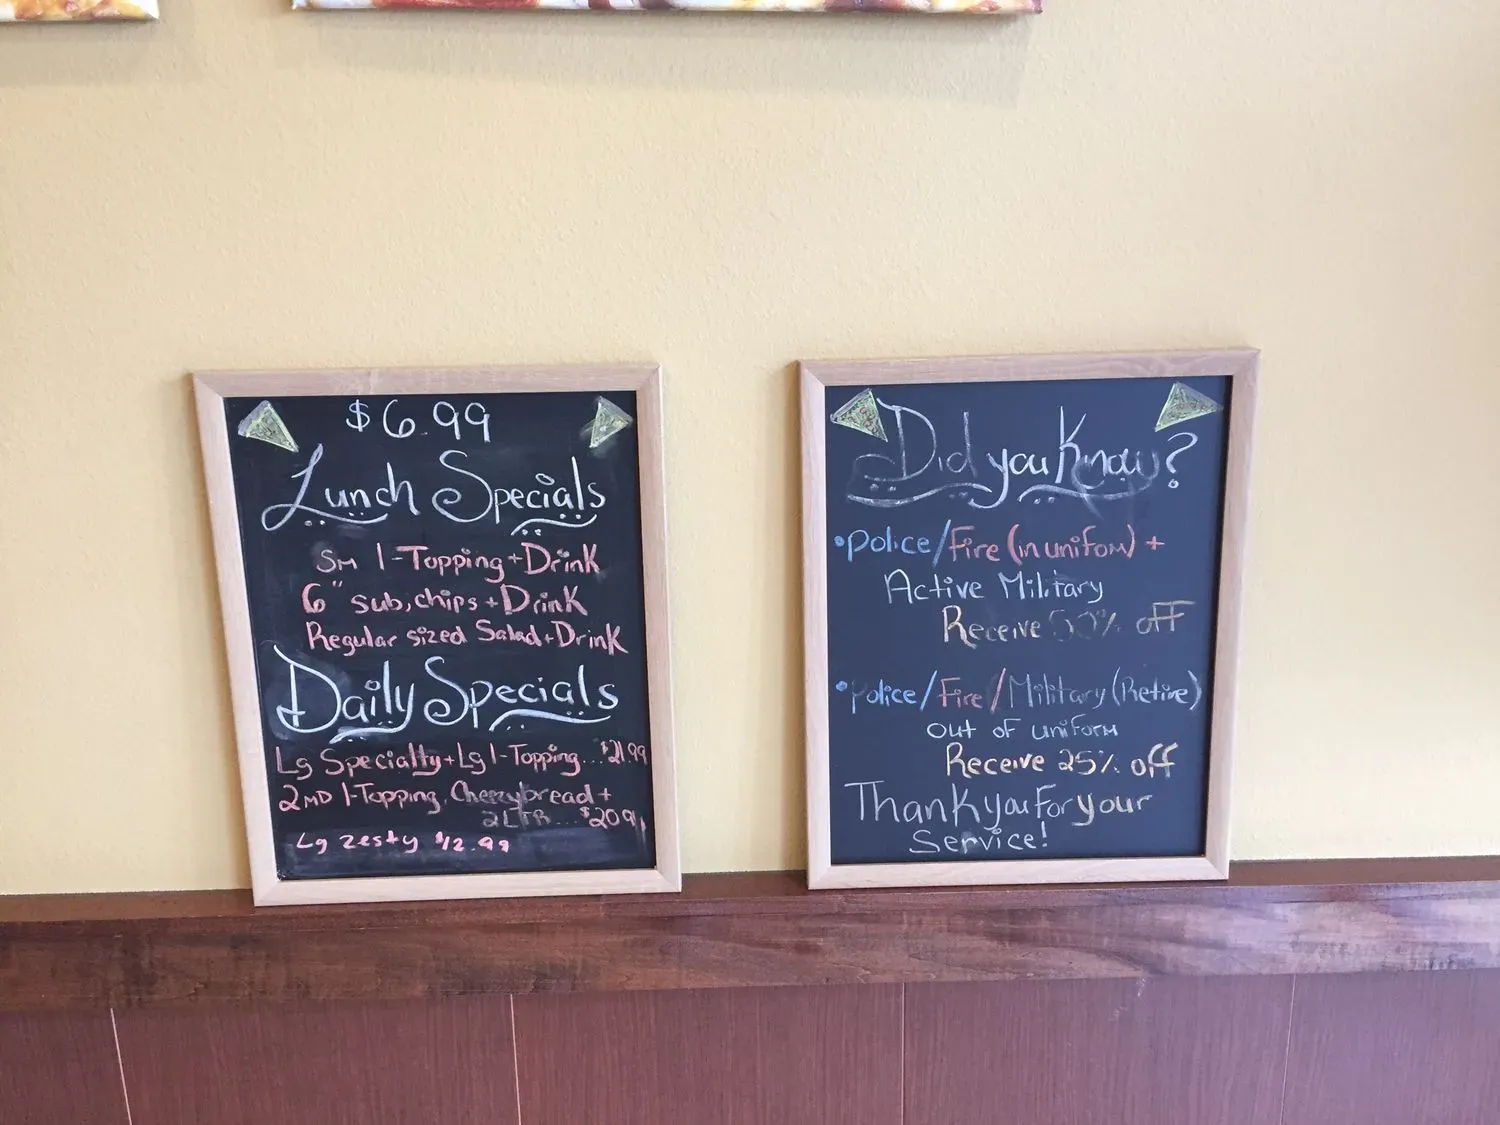 $6.99
Lunch Specials
SM 1-Topping + Drink
6" sub, chips + Drink
Regular sized Salad + Drink
Daily Specials
Lg Specialty + Lg 1-Topping... $21.99
2 MD 1-Topping, Cheezybread +
2 LTR... $20.9
Lg Zesty $12.99
Did you Know?
• Police/Fire (in unifom) +
Active Military
Receive 50% off
• Police/Fire/Military (Retire)
out of uniform
Receive 25% off
Thank you For your
Service!